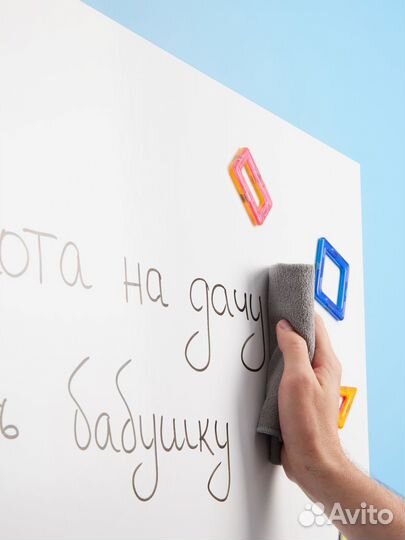 ота на дачу
ь бабушку
Avito